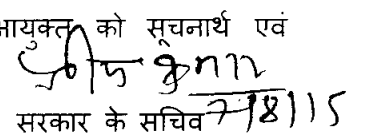 भायुक्त को सूचनार्थ एवं
कुमार
सरकार के सचिव 7/8/15